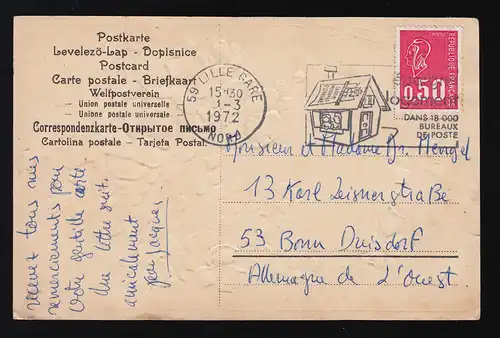 Postkarte
Levelező-Lap - Dopisnice
Postcard
Carte postale - Briefkaart
Weltpostverein
- Union postale universelle
- Unione postale universale
Correspondenzkarte-Открытое письмо
Cartolina postale - Tarjeta Postal.
59 LILLE GARE
15H30
1-3
1972
NORD
logement
DANS 18 000
BUREAUX
DE POSTE
REPUBLIQUE FRANÇAISE
0,50
recevez tous mes
remerciements pour
votre gentille carte
amicalement
Jean Jacques
Monsieur et Madame Dr. Mengel
13 Karl Leisnerstraße
53 Bonn Duisdorf
Allemagne de l'Ouest